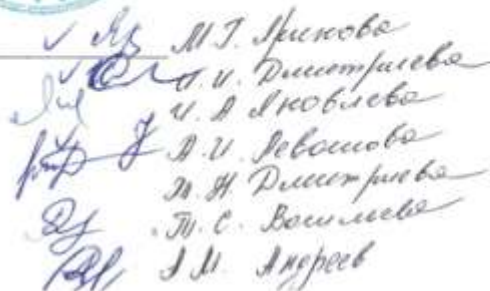 М.Г.
И.И. Дмитриева
И.А. Яковлева
А.И. Левашова
М.Н. Дмитриева
Т.С. Васильева
А.М. Андреев